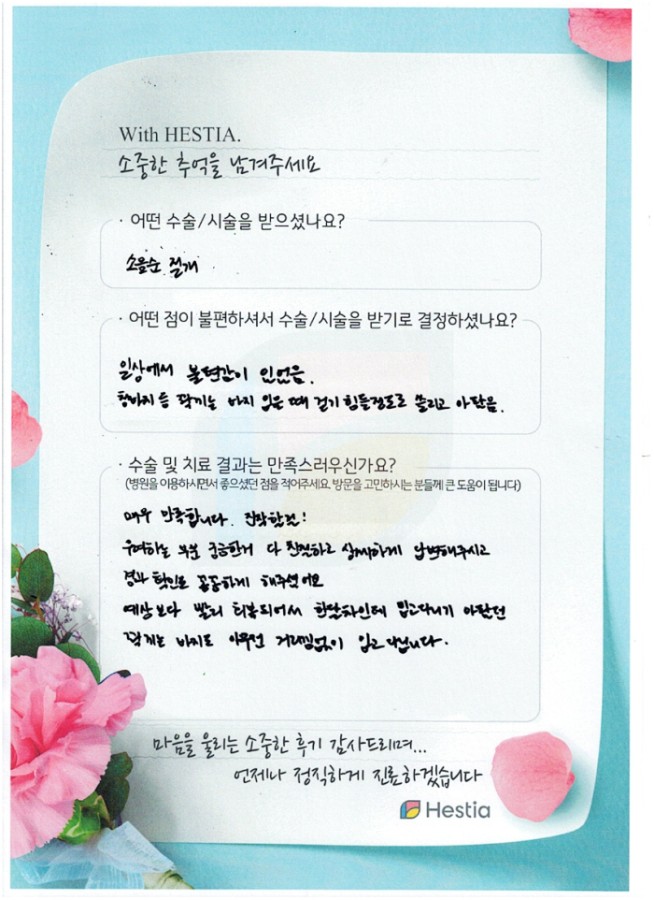 With HESTIA.
소중한 추억을 남겨주세요
· 어떤 수술/시술을 받으셨나요?
소음순 절개
· 어떤 점이 불편하셔서 수술/시술을 받기로 결정하셨나요?
일상에서 불편감이 있었음.
청바지 등 꽉끼는 바지 입은 때 걷기 힘들정도로 쓸리고 아팠음.
· 수술 및 치료 결과는 만족스러우신가요?
(병원을 이용하시면서 좋으셨던 점을 적어주세요. 방문을 고민하시는 분들께 큰 도움이 됩니다)
매우 만족합니다. 진작할걸!
우려하는 부분 궁금한거 다 친절하고 상세하게 답변해주시고
경과 확인도 꼼꼼하게 해주셨어요
예상보다 빨리 회복되어서 한달차인데 입고다니기 아팠던
꽉끼는 바지도 아무런 거리낌없이 입고 다닙니다.
마음을 울리는 소중한 후기 감사드리며...
언제나 정직하게 진료하겠습니다
Hestia